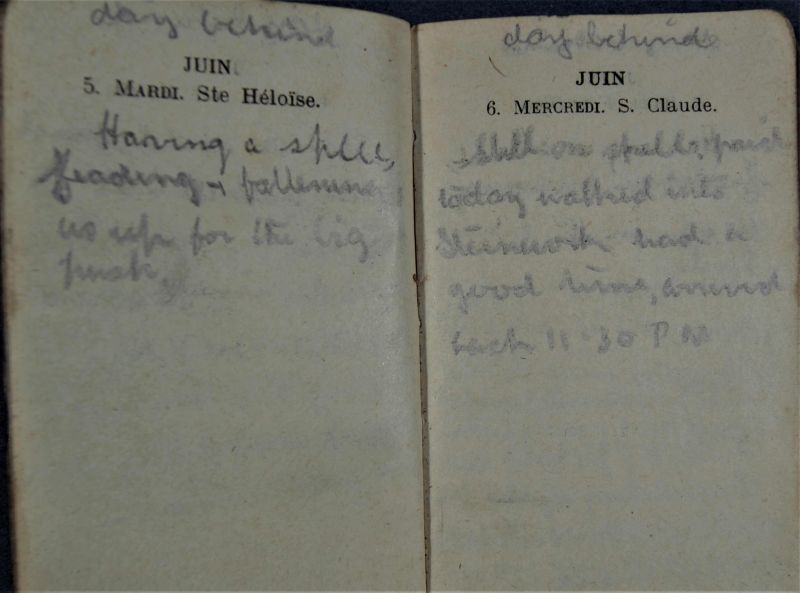 day behind
JUIN
5. MARDI. Ste Héloïse.
Having a spell,
feading & fattening
us up for the big
push
day behind
JUIN
6. MERCREDI. S. Claude.
Still on spell, paid
today walked into
had a
good time, arrived
back 11-30 P M